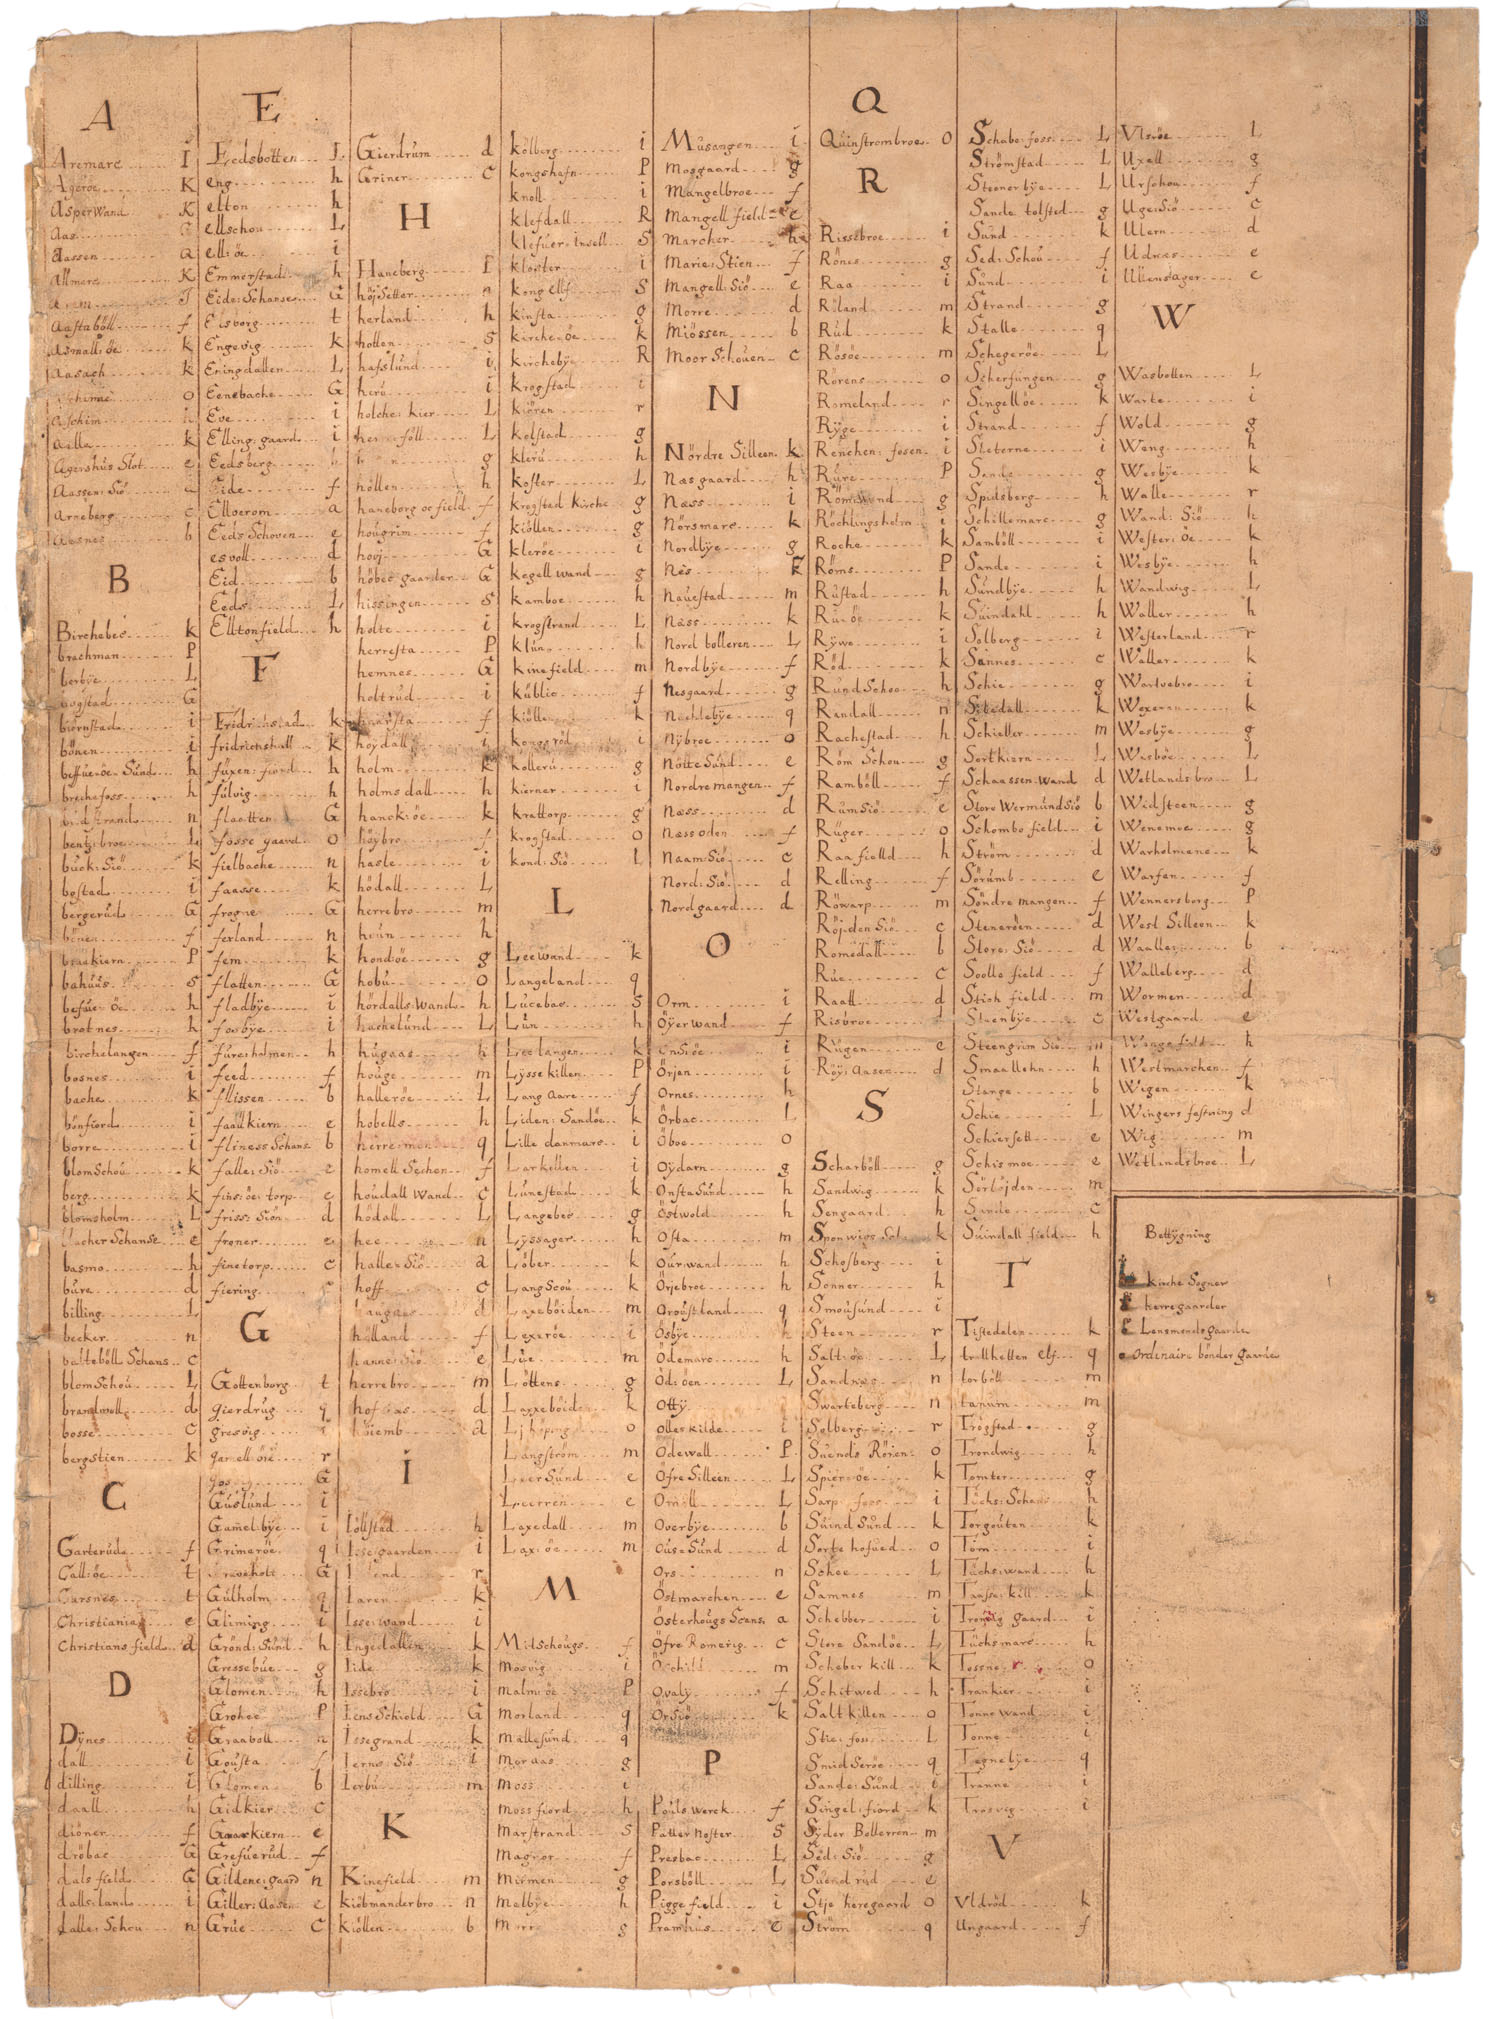 A
Aremarc I
Ageröe K
Asperwand K
Aas
Aassen a
Allmerc K
Aastaböll f
Asmall: öe k
Aasagh k
o
Aschim
Aalla k
Agershus Slot e
Aassen: Siö
Arneberg c
Aasnes b
B
Birchebeo k
brachman P
berbÿe L
bogstad G
biörnstad i
bönen i
beffueröe Sünd h
brechefoss h
n
bentz: broe L
buck: Siö k
bostad i
bergerüd G
bönen f
bräckiern P
bahuus s
befue: öe h
brotnes h
birchelangen f
bosnes i
bache k
bönfiord i
borre i
blomSchoü k
berg k
blomsholm L
Aacher Schanse e
basmo h
büre d
billing L
becker n
balteböll Schans c
blomSchoü L
brandwoll d
bosse c
bergstien k
C
Garterüd f
Call: öe t
Carsnes t
Christiania e
Christians field d
D
Dÿnes i
dall i
dilling i
daall h
diöner f
dröbac G
dals field G
dalls: land i
dalle: Schou n
E
Eedsbotten I
eng h
elton h
ellschou L
ell: öe i
Emmerstad h
Eide: Schanse G
Elsborg t
Engevig k
Eningdallen L
Eenebache G
Eve i
Elling: gaard i
Eedsberg
Eide f
Elloerom a
Eeds Schoven e
esvoll d
Eid b
Eeds L
Elltonfield h
F
Fridrichstad k
fridrichshall k
füxen: fiord h
fülvig h
flaatten G
fosse gaard o
fielbache n
faasse k
frogne G
ferland n
fem k
flatten G
fladbÿe i
fosbÿe i
füre: holmen h
feed f
fllissen b
faalkiern e
fliness Schans b
falle: Siö e
fins: öe: torp e
friss: Siön d
froner e
finetorp c
fiering
G
Gottenborg t
gierdrug q
gresvig i
gamell öre r
G
Güslund i
Gamel: bÿe i
Grimeröe q
G
Gülholm q
Gliming i
Grönd: Sünd h
Gressebüe g
Glomen h
Grohee P
Graaboll n
Goüsta f
Glomen b
Gidkier c
Graarkiern e
Grefüerüd f
Gildene: gaard n
Giller: Aasen e
Grüe c
Gierdrum d
Griner C
H
Haneberg I
höjSetter n
herland h
hotten s
hafslund i
herü i
holche: kier L
L
g
höllen h
haneborg oc field f
hoügrim f
hovj G
höbeo gaarder G
hissingen s
holte i
herresta P
hemnes G
holtrüd i
f
höÿdall i
holm k
holmsdall h
hanck: öe k
höÿbro f
hasle i
hödall L
herrebro m
heün h
hondöe g
hobü o
hördalls: Wand h
hachelünd L
hügaas h
houge m
halleröe L
hobells h
herre: men q
homell Sechen f
houdall Wand c
hödall L
hee n
halle: Siö a
hoff c
haugnes d
hölland f
hanne: Siö e
herrebro m
d
höiemb a
I
Iöllstad h
Issegaarden i
r
Iaren k
Isse: wand i
Ingedallen k
Iide k
Issebro i
Iens Schiold G
Issegrand k
Ierne Siö i
Ierbü m
K
Kinefield m
kiöbmanderbro n
Kiöllen b
kölberg i
kongshafn P
knoll i
klefdall R
klefüer: insell S
kloster i
kong ellf S
kinsta g
kirche: öe k
kirchebÿe R
krogstad i
kiören r
kolstad g
klerü h
koster L
krogstad kirche g
kiöllen g
kleröe i
kegell wand g
kamboe h
krogstrand L
klün h
kinefield m
küblic f
kiöllen k
kongsröd i
kollerü g
kierner i
krattorp g
krogstad o
kond: Siö L
L
Leewand k
Langeland q
Lucebac S
Lün h
Lee langen k
Lÿssekillen P
Lang Aare f
Liden: Sandöe k
Lille danmarc i
Larköllen i
Lünestad k
Langebeo g
Lÿssager h
Löber k
LangScoü k
Laxeböiden m
Lexeröe i
Lüe m
Löttens g
Laxxeböid k
o
Langström m
Leer Sünd e
Leerren e
Laxedall m
Lax: öe m
M
Mitschougs f
Mosvig i
malm: öe P
Morland q
mallesünd q
moraas g
moss i
moss fiord h
Marstrand S
Magnor f
Mismen g
melbÿe h
g
Musangen i
Mosgaard g
Mangelbroe f
Mangell field e
Marcher h
Marie: Stien f
Mangell: Siö e
Morre d
Miössen b
Moor Schouen c
N
Nördre Silleen k
Næsgaard h
Næss i
Nörsmarc k
Nordbÿe g
Nes k
Nauestad m
Næss k
Nord tolleren L
Nordbÿe f
Nesgaard g
Nechlebÿe q
Nÿbroe o
NötteSünd e
Nordre mangen f
Næss d
Næss oden f
Naam Siö c
Nord: Siö d
Nordgaard d
O
Orm i
Öÿerwand f
i
Örjen i
Ornes h
Örbac L
Öboe o
Oÿdarn g
Onsta Sünd h
Östwold h
Osta m
Our wand h
Örjebroe h
Aroüst land q
Ösbÿe h
Ödemarc h
Öd: öen L
Ottÿ
olleskilde i
Odewall P
Öfre Silleen L
Omöll L
Overbÿe b
Ouse Sünd d
Ors n
Östmarchen e
Österhougs Scans a
Öfre Romerig c
Öschild m
Ovalÿ f
ÖrSiö k
P
Poüls werck f
Patter Noster S
Presbac L
Porsböll L
Pigge field i
Pramhüs e
Q
Quinstrombroe o
R
Rissebroe i
Rönes g
Raa i
Röland m
Rüd k
Rösöe m
Rörens o
Romeland r
Rÿge i
Renchen: fosen i
Rüre P
Römswand g
Röchlingsholm i
Roche k
Röms P
Rüstad h
Ru: öe k
Rÿwe i
Röd k
Ründ Schoo h
Randall n
Rachestad h
Röm Schou g
Ramböll f
RümSiö e
Rüger o
Raa fielld h
Relling f
Röwarp m
RöjdenSiö c
Romedall b
Rüe c
Raatt d
Risbroe d
Rügen e
Röÿ: Aasen d
S
Scharböll g
Sandwig k
Sengaard h
Sponwigs Sol k
Schosberg i
Sonner h
Smousünd i
Steen r
Salt: öe L
Sandnæs n
Swarteberg n
Solberg r
Suends Rören o
Spier: öe k
Sarp: foss i
Süind Sünd k
Sorte hofued o
Schee L
Samnes m
Schebber i
Store Sandöe L
Scheber kill k
Schitwed h
Saltkillen o
Stie: foss L
SmidSeröe q
Sande: Sünd i
Singel: fiord k
Sÿder Bolleren m
Sed: Siö g
Süend rüd e
Stje heregaard o
Ström q
Schabo: foss L
Strömstad L
Steenerbÿe L
Sande tolsted g
Sünd k
Sed: Schoü f
Sünd i
Strand g
Stalle q
Schegeröe L
Scherfüngen g
Singellöe k
Strand f
Sleterne i
Sande g
Spidsberg h
Schillemarc g
Samböll i
Sande i
Sündbÿe h
Süindahl h
Solberg i
Sännes c
Schie g
Stedall k
Schieller m
Sortkiern L
Schaassen: wand d
Store WermündSiö b
Schombo field i
Ström d
Sörumb e
Söndre mangen f
Steneröen d
Store: Siö d
Soolle field f
Stich field m
Steenbÿe c
Steengrim Siö m
Smaallehn h
Stange b
Schie L
Schiersett e
Schismoe e
Sörlöjden m
Sande c
Suindall field h
T
Tistedalen k
trollhetten elf q
torböll m
tanum m
Trögstad g
Trondwig h
Tomter g
Tüchs: Schans h
Torgouten k
Törn i
Tüchs: wand h
Tanse: kill k
Tronvig gaard i
Tüchsmarc h
Tossne o
Trankier i
Tonne wand i
Tonne i
Tegnebÿe q
Tranne i
Trosvig i
V
Vldröd k
Ungaard f
Vlsröe L
Uxell g
Urschou f
Uge: Siö c
Ulern d
Udnæs e
Ullensager e
W
Wasbotten L
Warte i
Wold g
Weng h
Wesbÿe k
Walle r
Wand: Siö h
Wester: öe k
Wesbÿe h
Wandwig L
Waller h
Westerland r
Waller k
Wartuebro i
Wexeren k
Wesbÿe g
Wasböe L
Wetlandsbro L
Widsteen g
Wenemoe g
Warholmene k
Warfen f
Wennersborg P
West Silleen k
Waaller b
Walleberg d
Wormen d
Westgaard e
Wings field h
Westmarchen f
Wigen k
Wingers festning d
Wig m
Wetlandsbroe L
Bettÿgning
kirche Sogner
herregaarder
Lensmendsgaarde
ordinaire bönder gaarde